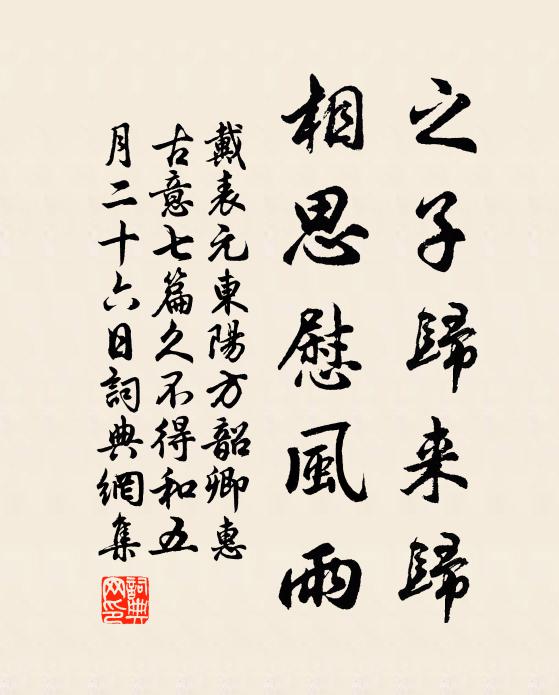 之子歸来歸
相思慰風雨
戴表元東陽方韶卿惠
古意七篇久不得和五
月二十六日詞典網集
詞典网印